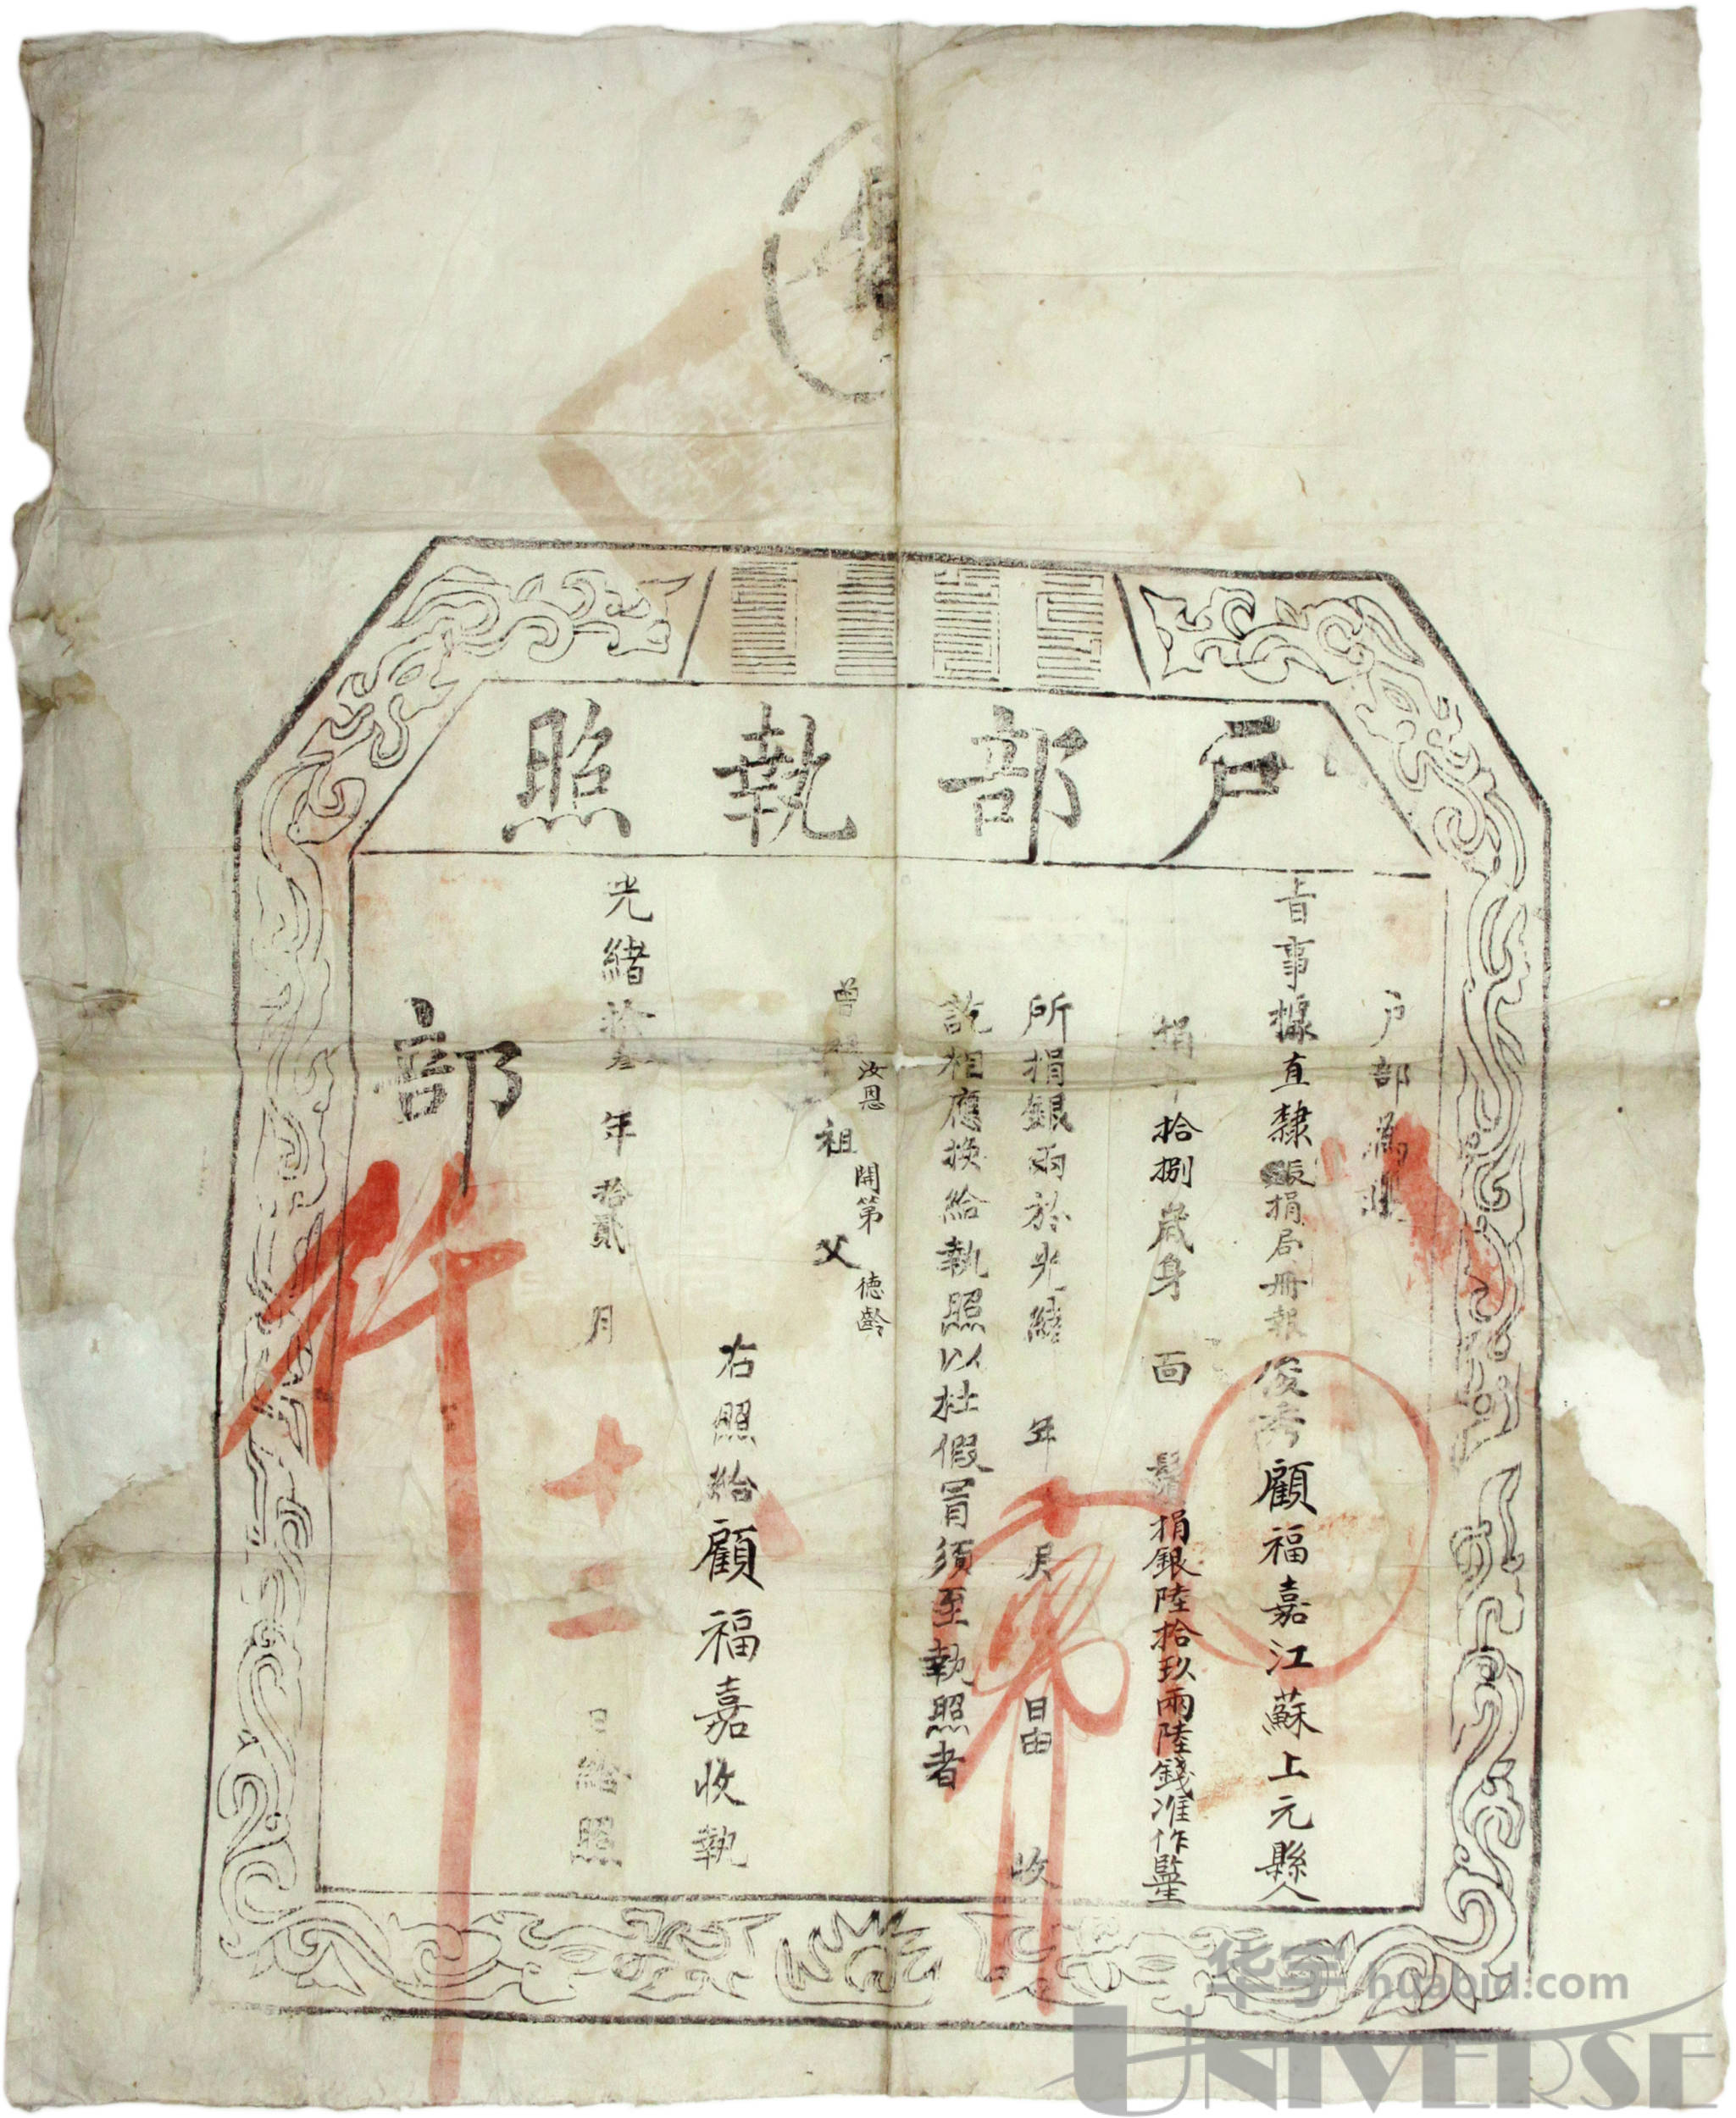 戶部執照
戶部為
旨事據直隸賑捐局冊報俊秀顧福嘉江蘇上元縣人
捐 拾捌歲身 面 鬚捐銀陸拾玖兩陸錢准作監生
所捐銀兩於光緒 年 月 日由 收
訖相應換給執照以杜假冒須至執照者
曾祖汝恩祖開第父德齡
右照給顧福嘉收執
光緒拾叁年拾貳月十二日給照
部
行
华宇 huabid.com
UNIVERSE